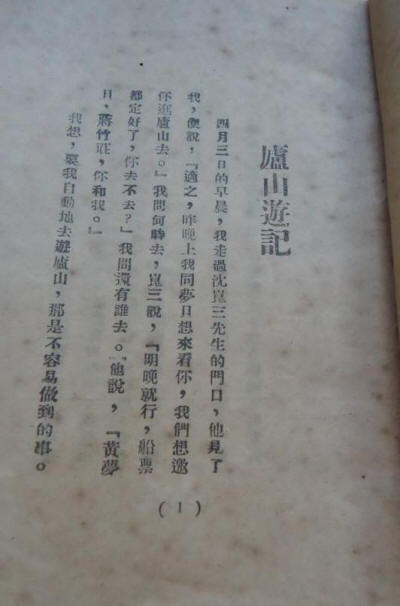 廬山遊記
四月三日的早晨，我走過沈崑三先生的門口，他見了
我，便說，「適之，昨晚上我同夢旦想來看你，我們想邀
你逛廬山去。」我問何時去，崑三說，「明晚就行，船票
都定好了，你去不去？」我問還有誰去。他說，「黃夢
旦、蔣竹莊，你和我。」
我想，要我自動地去遊廬山，那是不容易做到的事。
(1)